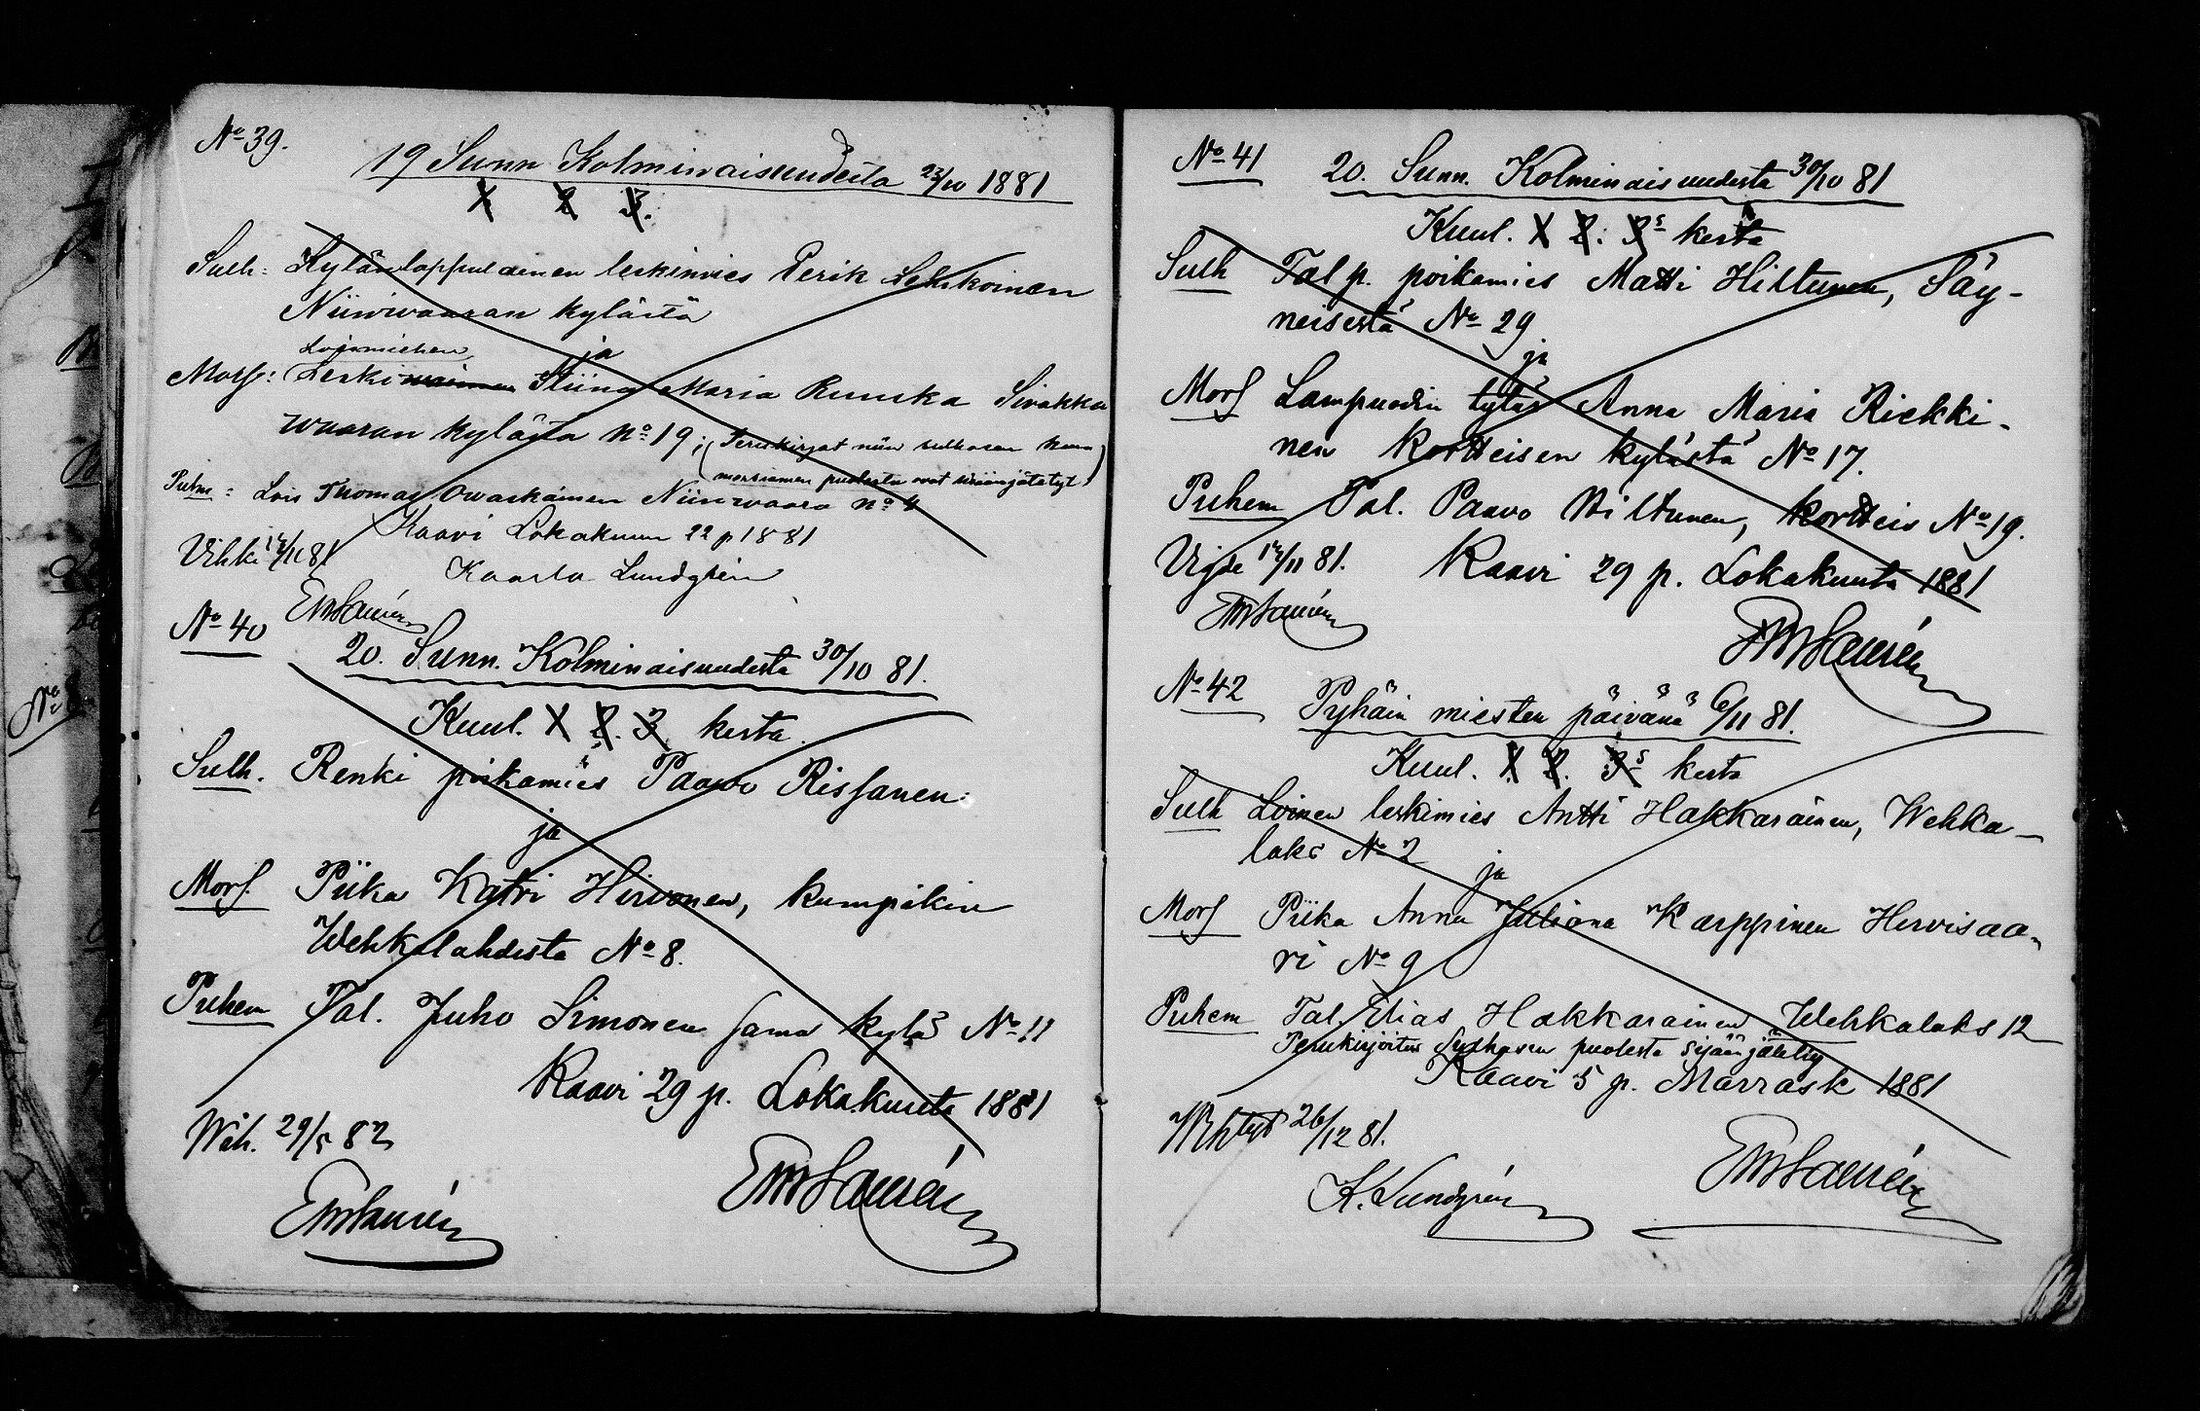 No 39.
19 Sunn Kolminaisuudesta 23/10 1881
1 2 3.
Sulh: Kylänloppulainen leskimies Perik
Niinivaaran kylästä
ja
Loismiehen
Mors: Leski Stiina Maria Ruuska Sivakka
waaran kylästä no 19; (Perukirjat niin sulhasen kuin
morsiamen puolesta ovat sisäänjätetyt)
Puhm: Lois Thomas Owaskainen Niinivaara no 4
Kaavi Lokakuun 22 p 1881
Vihki /11 81
Kaarlo Lundgrén
EmSaurén
No 40
20. Sunn. Kolminaisuudesta 30/10 81.
Kuul. 1 2. 3 kerta.
Sulh. Renki poikamies Paavo Rissanen
ja
Mors. Piika Katri Hirvonen, kumpikin
Wehkalahdesta No 8.
Puhem Tal. Juho Simonen sama kylä No 11
Kaavi 29 p. Lokakuuta 1881
Wih. 29/5 82
EmSaurén
EmSaurén
No 41
20. Sunn. Kolminaisuudesta 30/10 81
Kuul. 1 2. 3s kerta
Sulh Talp. poikamies Matti Hiltunen, Säy-
neisestä No 29
ja
Mors Lampuodin tytär Anna Maria Riekki-
nen Kortteisen kylästä No 17.
Puhem Tal. Paavo Hiltunen, Kortteis No 19.
Kaavi 29 p. Lokakuuta 1881
/11 81.
EmSaurén
EmSaurén
No 42
Pyhäin miesten päivänä 6/11 81.
Kuul. 1 2. 3s kerta
Sulh Loinen leskimies Antti Hakkarainen, Wehka-
laks No 2
ja
Mors Piika Anna Juliana Karppinen Hirvisaa-
ri No 9
Puhem Tal. Elias Hakkarainen Wehkalaks 12
Perukirjoitus Sulhasen puolesta sijään jätetty
Kaavi 5 p. Marrask 1881
Wihtyt 26/12 81.
K. Lundgrén
EmSaurén